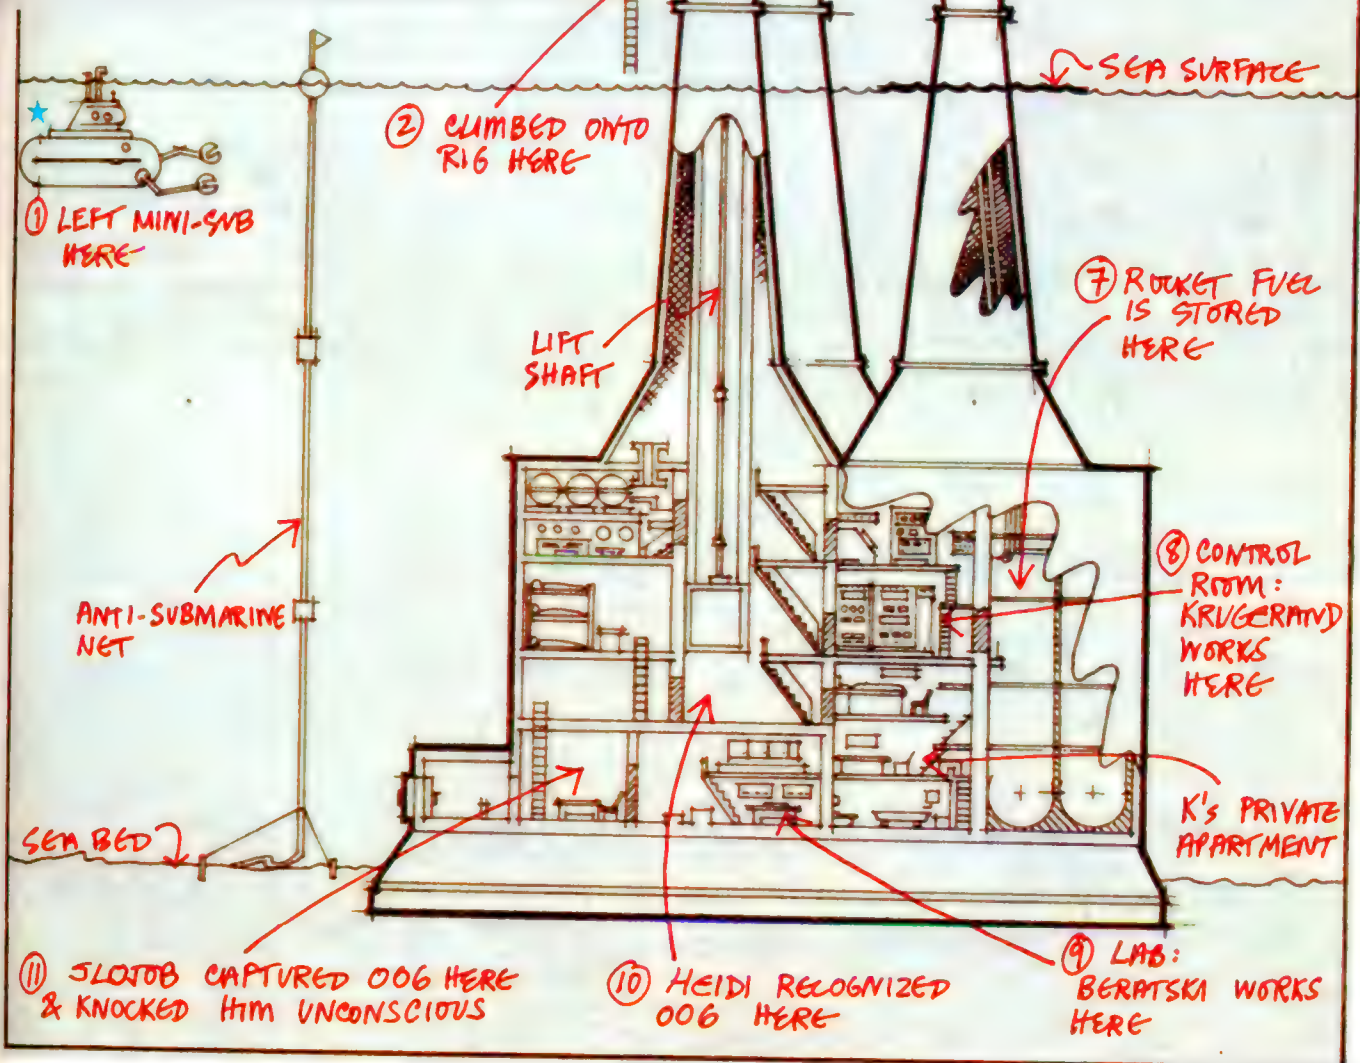 SEA SURFACE
② CLIMBED ONTO
RIG HERE
① LEFT MINI-SUB
HERE
⑦ ROCKET FUEL
IS STORED
HERE
LIFT
SHAFT
⑧ CONTROL
ROOM:
KRUGERAND
WORKS
HERE
ANTI-SUBMARINE
NET
K'S PRIVATE
APARTMENT
SEA BED
⑪ SLOJOB CAPTURED 006 HERE
& KNOCKED HIM UNCONSCIOUS
⑩ HEIDI RECOGNIZED
006 HERE
⑨ LAB:
BERATSKI WORKS
HERE